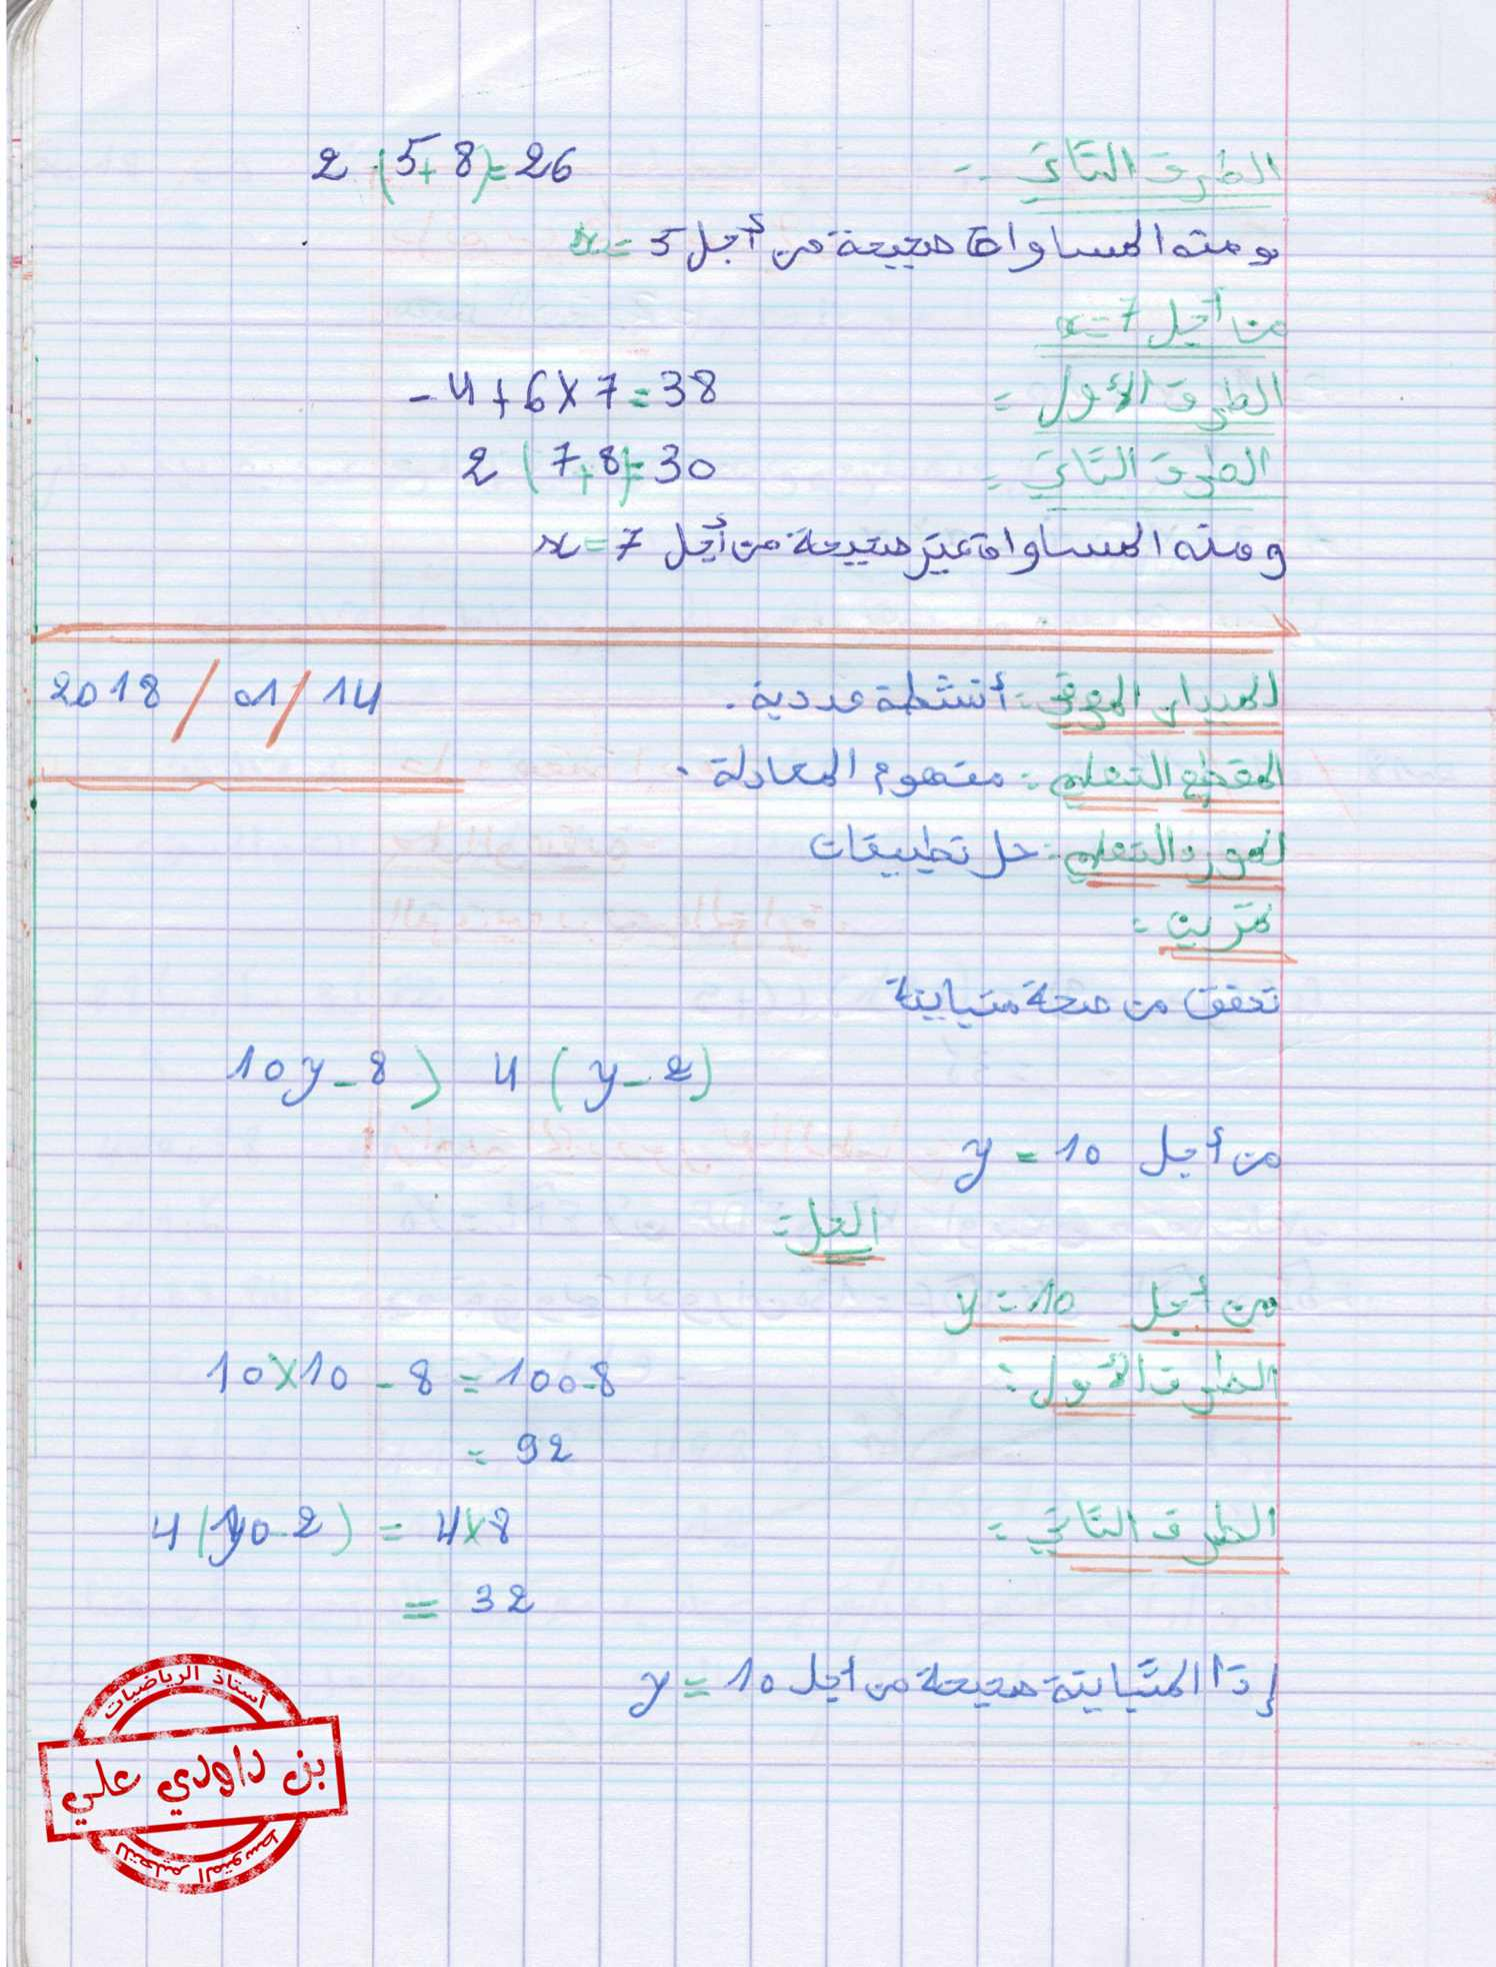 الطرف الثاني :- 2 (5+8)=26
ومنه المساواة صحيحة من أجل x=5
من أجل x=7
الطرف الأول : -4+6×7=38
الطرف الثاني : 2 (7+8)=30
ومنه المساواة غير صحيحة من أجل x=7
الميدان المعرفي : أنشطة عددية . 2018/01/14
المقطع التعلمي : مفهوم المعادلة .
المورد التعلمي : حل تطبيقات
تمرين :
تحقق من صحة متباينة
10y-8 > 4(y-2)
من أجل y=10
الحل :
من أجل y=10
الطرف الأول : 10×10-8=100-8
=92
الطرف الثاني : 4(10-2)=4×8
=32
إذا المتباينة صحيحة من أجل y=10
أستاذ الرياضيات
بن داودي علي
للتعليم المتوسط